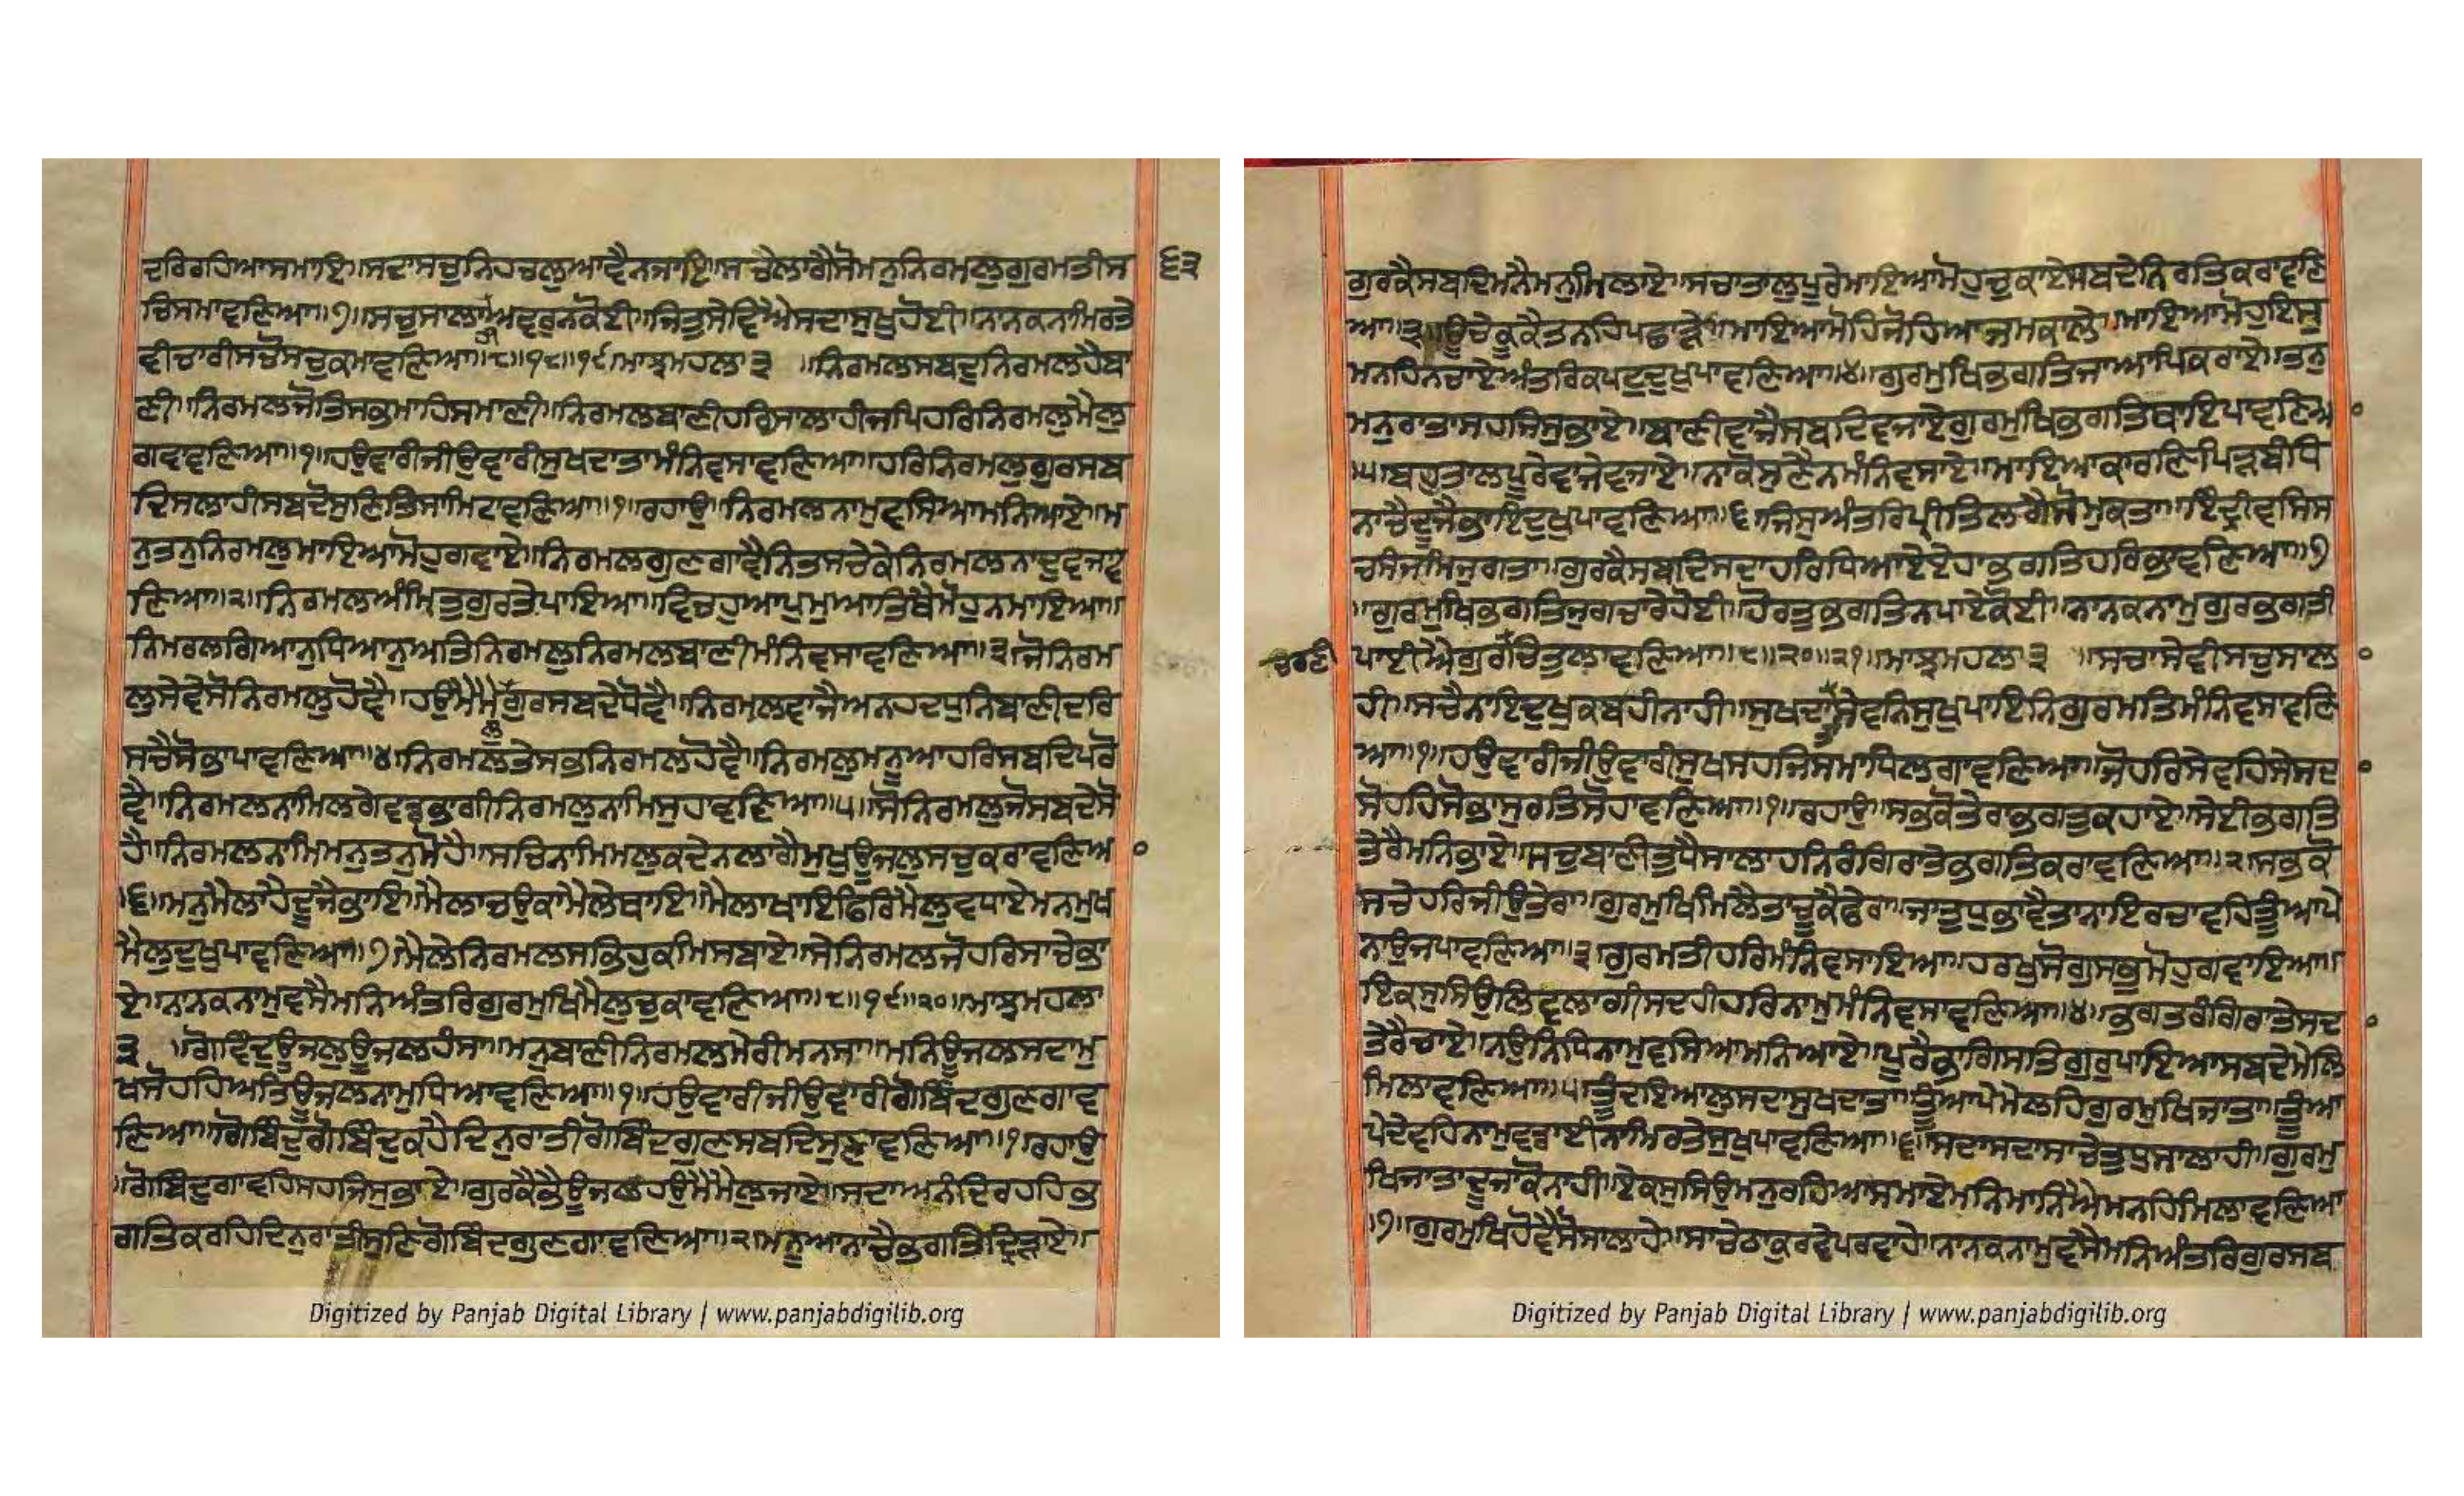 ਦਰਿਰਹਿਆਸਮਾਇ॥ਸਦਾਸਚੁਨਿਹਚਲੁਆਵੈਨਜਾਇ॥ਸਚੈਲਾਗੈਸੋਮਨੁਨਿਰਮਲੁਗੁਰਮਤੀਸ
੬੩
ਚਿਸਮਾਵਣਿਆ॥੭॥ਸਚੁਸਾਲਾਹੀਅਵਰੁਨਕੋਈ॥ਜਿਤੁਸੇਵਿਐਸਦਾਸੁਖੁਹੋਈ॥ਨਾਨਕਨਾਮਿਰਤੇ
ਵੀਚਾਰੀਸਚੋਸਚੁਕਮਾਵਣਿਆ॥੮॥੧੮॥੧੯॥ਮਾਝਮਹਲਾ੩ ॥ਨਿਰਮਲਸਬਦੁਨਿਰਮਲਹੈਬਾ
ਣੀ॥ਨਿਰਮਲਜੋਤਿਸਭਮਾਹਿਸਮਾਣੀ॥ਨਿਰਮਲਬਾਣੀਹਰਿਸਾਲਾਹੀਜਪਿਹਰਿਨਿਰਮਲੁਮੈਲੁ
ਗਵਾਵਣਿਆ॥੧॥ਹਉਵਾਰੀਜੀਉਵਾਰੀਸੁਖਦਾਤਾਮੰਨਿਵਸਾਵਣਿਆ॥ਹਰਿਨਿਰਮਲੁਗੁਰਸਬ
ਦਿਸਲਾਹੀਸਬਦੋਸੁਣਿਤਿਸਾਮਿਟਾਵਣਿਆ॥੧॥ਰਹਾਉ॥ਨਿਰਮਲਨਾਮੁਵਸਿਆਮਨਿਆਏ॥ਮ
ਨੁਤਨੁਨਿਰਮਲੁਮਾਇਆਮੋਹੁਗਵਾਏ॥ਨਿਰਮਲਗੁਣਗਾਵੈਨਿਤਸਾਚੇਕੇਨਿਰਮਲਨਾਦੁਵਜਾਵ
ਣਿਆ॥੨॥ਨਿਰਮਲਅੰਮ੍ਰਿਤੁਗੁਰਤੇਪਾਇਆ॥ਵਿਚਹੁਆਪੁਮੁਆਤਿਥੈਮੋਹੁਨਮਾਇਆ॥
ਨਿਮਰਲਗਿਆਨੁਧਿਆਨੁਅਤਿਨਿਰਮਲੁਨਿਰਮਲਬਾਣੀਮੰਨਿਵਸਾਵਣਿਆ॥੩॥ਜੋਨਿਰਮ
ਲੁਸੇਵੇਸੋਨਿਰਮਲੁਹੋਵੈ॥ਹਉਮੈਮੈਲੁਗੁਰਸਬਦੇਧੋਵੈ॥ਨਿਰਮਲਵਾਜੈਅਨਹਦਧੁਨਿਬਾਣੀਦਰਿ
ਸਚੈਸੋਭਾਪਾਵਣਿਆ॥੪॥ਨਿਰਮਲਤੇਸਭਨਿਰਮਲਹੋਵੈ॥ਨਿਰਮਲੁਮਨੂਆਹਰਿਸਬਦਿਪਰੋ
ਵੈ॥ਨਿਰਮਲਨਾਮਿਲਗੇਵਡਭਾਗੀਨਿਰਮਲੁਨਾਮਿਸੁਹਾਵਣਿਆ॥੫॥ਸੋਨਿਰਮਲੁਜੋਸਬਦੇਸੋ
ਹੈ॥ਨਿਰਮਲਨਾਮਿਮਨੁਤਨੁਮੋਹੈ॥ਸਚਿਨਾਮਿਮਲੁਕਦੇਨਲਾਗੈਮੁਖੁਊਜਲੁਸਚੁਕਰਾਵਣਿਅ
॥੬॥ਮਨੁਮੈਲਾਹੈਦੂਜੈਭਾਇ॥ਮੈਲਾਚਉਕਾਮੈਲੇਥਾਇ॥ਮੈਲਾਖਾਇਫਿਰਿਮੈਲੁਵਧਾਏਮਨਮੁਖ
ਮੈਲੁਦੁਖੁਪਾਵਣਿਆ॥੭॥ਮੈਲੇਨਿਰਮਲਸਭਿਹੁਕਮਿਸਬਾਏ॥ਸੇਨਿਰਮਲਜੋਹਰਿਸਾਚੇਭਾ
ਏ॥ਨਾਨਕਨਾਮੁਵਸੈਮਨਿਅੰਤਰਿਗੁਰਮੁਖਿਮੈਲੁਚੁਕਾਵਣਿਆ॥੮॥੧੯॥੨੦॥ਮਾਝਮਹਲਾ
੩ ॥ਗੋਵਿੰਦੁਊਜਲੁਊਜਲਹੰਸਾ॥ਮਨੁਬਾਣੀਨਿਰਮਲਮੇਰੀਮਨਸਾ॥ਮਨਿਊਜਲਸਦਾਮੁ
ਖਸੋਹਹਿਅਤਿਊਜਲਨਾਮੁਧਿਆਵਣਿਆ॥੧॥ਹਉਵਾਰੀਜੀਉਵਾਰੀਗੋਬਿੰਦਗੁਣਗਾਵ
ਣਿਆ॥ਗੋਬਿੰਦੁਗੋਬਿੰਦੁਕਹੈਦਿਨੁਰਾਤੀਗੋਬਿੰਦਗੁਣਸਬਦਿਸੁਣਾਵਣਿਆ॥੧॥ਰਹਾਉ
॥ਗੋਬਿੰਦੁਗਾਵਹਿਸਹਜਿਸੁਭਾਏ॥ਗੁਰਕੈਭੈਊਜਲਹਉਮੈਮੈਲੁਜਾਏ॥ਸਦਾਅਨੰਦਿਰਹਹਿਭ
ਗਤਿਕਰਹਿਦਿਨੁਰਾਤੀਸੁਣਿਗੋਬਿੰਦਗੁਣਗਾਵਣਿਆ॥੨॥ਮਨੂਆਨਾਚੈਭਗਤਿਦ੍ਰਿੜਾਏ॥
Digitized by Panjab Digital Library | www.panjabdigilib.org
ਗੁਰਕੈਸਬਦਿਮਨੈਮਨੁਮਿਲਾਏ॥ਸਚਾਤਾਲੁਪੂਰੇਮਾਇਆਮੋਹੁਚੁਕਾਏਸਬਦੇਨਿਰਤਿਕਰਾਵਣਿ
ਆ॥੩॥ਊਚੇਕੂਕੈਤਨਹਿਪਛਾੜੇ॥ਮਾਇਆਮੋਹਿਜੋਹਿਆਜਮਕਾਲੇ॥ਮਾਇਆਮੋਹੁਇਸੁ
ਮਨਹਿਨਚਾਏਅੰਤਰਿਕਪਟੁਦੁਖੁਪਾਵਣਿਆ॥੪॥ਗੁਰਮੁਖਿਭਗਤਿਜਾਆਪਿਕਰਾਏ॥ਤਨੁ
ਮਨੁਰਾਤਾਸਹਜਿਸੁਭਾਏ॥ਬਾਣੀਵਾਜੈਸਬਦਿਵਜਾਏਗੁਰਮੁਖਿਭਗਤਿਥਾਇਪਾਵਣਿਅ
॥੫॥ਬਹੁਤਾਲਪੂਰੇਵਾਜੇਵਜਾਏ॥ਨਾਕੋਸੁਣੇਨਮੰਨਿਵਸਾਏ॥ਮਾਇਆਕਾਰਣਿਪਿੜਬੰਧਿ
ਨਾਚੈਦੂਜੈਭਾਇਦੁਖੁਪਾਵਣਿਆ॥੬॥ਜਿਸੁਅੰਤਰਿਪ੍ਰੀਤਿਲਗੈਸੋਮੁਕਤਾ॥ਇੰਦ੍ਰੀਵਸਿਸ
ਚਸੰਜਮਿਜੁਗਤਾ॥ਗੁਰਕੈਸਬਦਿਸਦਾਹਰਿਧਿਆਏਏਹਾਭਗਤਿਹਰਿਭਾਵਣਿਆ॥੭
॥ਗੁਰਮੁਖਿਭਗਤਿਜੁਗਚਾਰੇਹੋਈ॥ਹੋਰਤੁਭਗਤਿਨਪਾਏਕੋਈ॥ਨਾਨਕਨਾਮੁਗੁਰਭਗਤੀ
ਚਰਣੀ
ਪਾਈਐਗੁਰਚਿਤੁਲਾਵਣਿਆ॥੮॥੨੦॥੨੧॥ਮਾਝਮਹਲਾ੩ ॥ਸਚਾਸੇਵੀਸਚੁਸਾਲ
ਹੀ॥ਸਚੈਨਾਇਦੁਖੁਕਬਹੀਨਾਹੀ॥ਸੁਖਦਾਤਾਸੇਵਨਿਸੁਖੁਪਾਇਨਿਗੁਰਮਤਿਮੰਨਿਵਸਾਵਣਿ
ਅ॥੧॥ਹਉਵਾਰੀਜੀਉਵਾਰੀਸੁਖਸਹਜਿਸਮਾਧਿਲਗਾਵਣਿਆ॥ਜੋਹਰਿਸੇਵਹਿਸੇਸਦ
ਸੋਹਹਿਸੋਭਾਸੁਰਤਿਸੋਹਾਵਣਿਆ॥੧॥ਰਹਾਉ॥ਸਭਕੋਤੇਰਾਭਗਤੁਕਹਾਏ॥ਸੇਈਭਗਤਿ
ਤੇਰੈਮਨਿਭਾਏ॥ਸਚੁਬਾਣੀਤੁਧੈਸਾਲਾਹਨਿਰੰਗਿਰਾਤੇਭਗਤਿਕਰਾਵਣਿਆ॥੨॥ਸਭਕੋ
ਸਚੇਹਰਿਜੀਉਤੇਰਾ॥ਗੁਰਮੁਖਿਮਿਲੈਤਾਚੂਕੈਫੇਰਾ॥ਜਾਤੁਧੁਭਾਵੈਤਾਨਾਇਰਚਾਵਹਿਤੂੰਆਪੇ
ਨਾਉਜਪਾਵਣਿਆ॥੩॥ਗੁਰਮਤੀਹਰਿਮੰਨਿਵਸਾਇਆ॥ਹਰਖੁਸੋਗੁਸਭੁਮੋਹੁਗਵਾਇਆ॥
ਇਕਸੁਸਿਉਲਿਵਲਾਗੀਸਦਹੀਹਰਿਨਾਮੁਮੰਨਿਵਸਾਵਣਿਆ॥੪॥ਭਗਤਰੰਗਿਰਾਤੇਸਦ
ਤੇਰੈਚਾਏ॥ਨਉਨਿਧਿਨਾਮੁਵਸਿਆਮਨਿਆਏ॥ਪੂਰੈਭਾਗਿਸਤਿਗੁਰੁਪਾਇਆਸਬਦੇਮੇਲਿ
ਮਿਲਾਵਣਿਆ॥੫॥ਤੂੰਦਇਆਲੁਸਦਾਸੁਖਦਾਤਾ॥ਤੂੰਆਪੇਮੇਲਹਿਗੁਰਮੁਖਿਜਾਤਾ॥ਤੂੰਆ
ਪੇਦੇਵਹਿਨਾਮੁਵਡਾਈਨਾਮਿਰਤੇਸੁਖੁਪਾਵਣਿਆ॥੬॥ਸਦਾਸਦਾਸਾਚੇਤੁਧੁਸਾਲਾਹੀ॥ਗੁਰਮੁ
ਖਿਜਾਤਾਦੂਜਾਕੋਨਾਹੀ॥ਏਕਸੁਸਿਉਮਨੁਰਹਿਆਸਮਾਏਮਨਿਮੰਨਿਐਮਨਹਿਮਿਲਾਵਣਿਆ
॥੭॥ਗੁਰਮੁਖਿਹੋਵੈਸੋਸਾਲਾਹੇ॥ਸਾਚੇਠਾਕੁਰਵੇਪਰਵਾਹੇ॥ਨਾਨਕਨਾਮੁਵਸੈਮਨਿਅੰਤਰਿਗੁਰਸਬ
Digitized by Panjab Digital Library | www.panjabdigilib.org